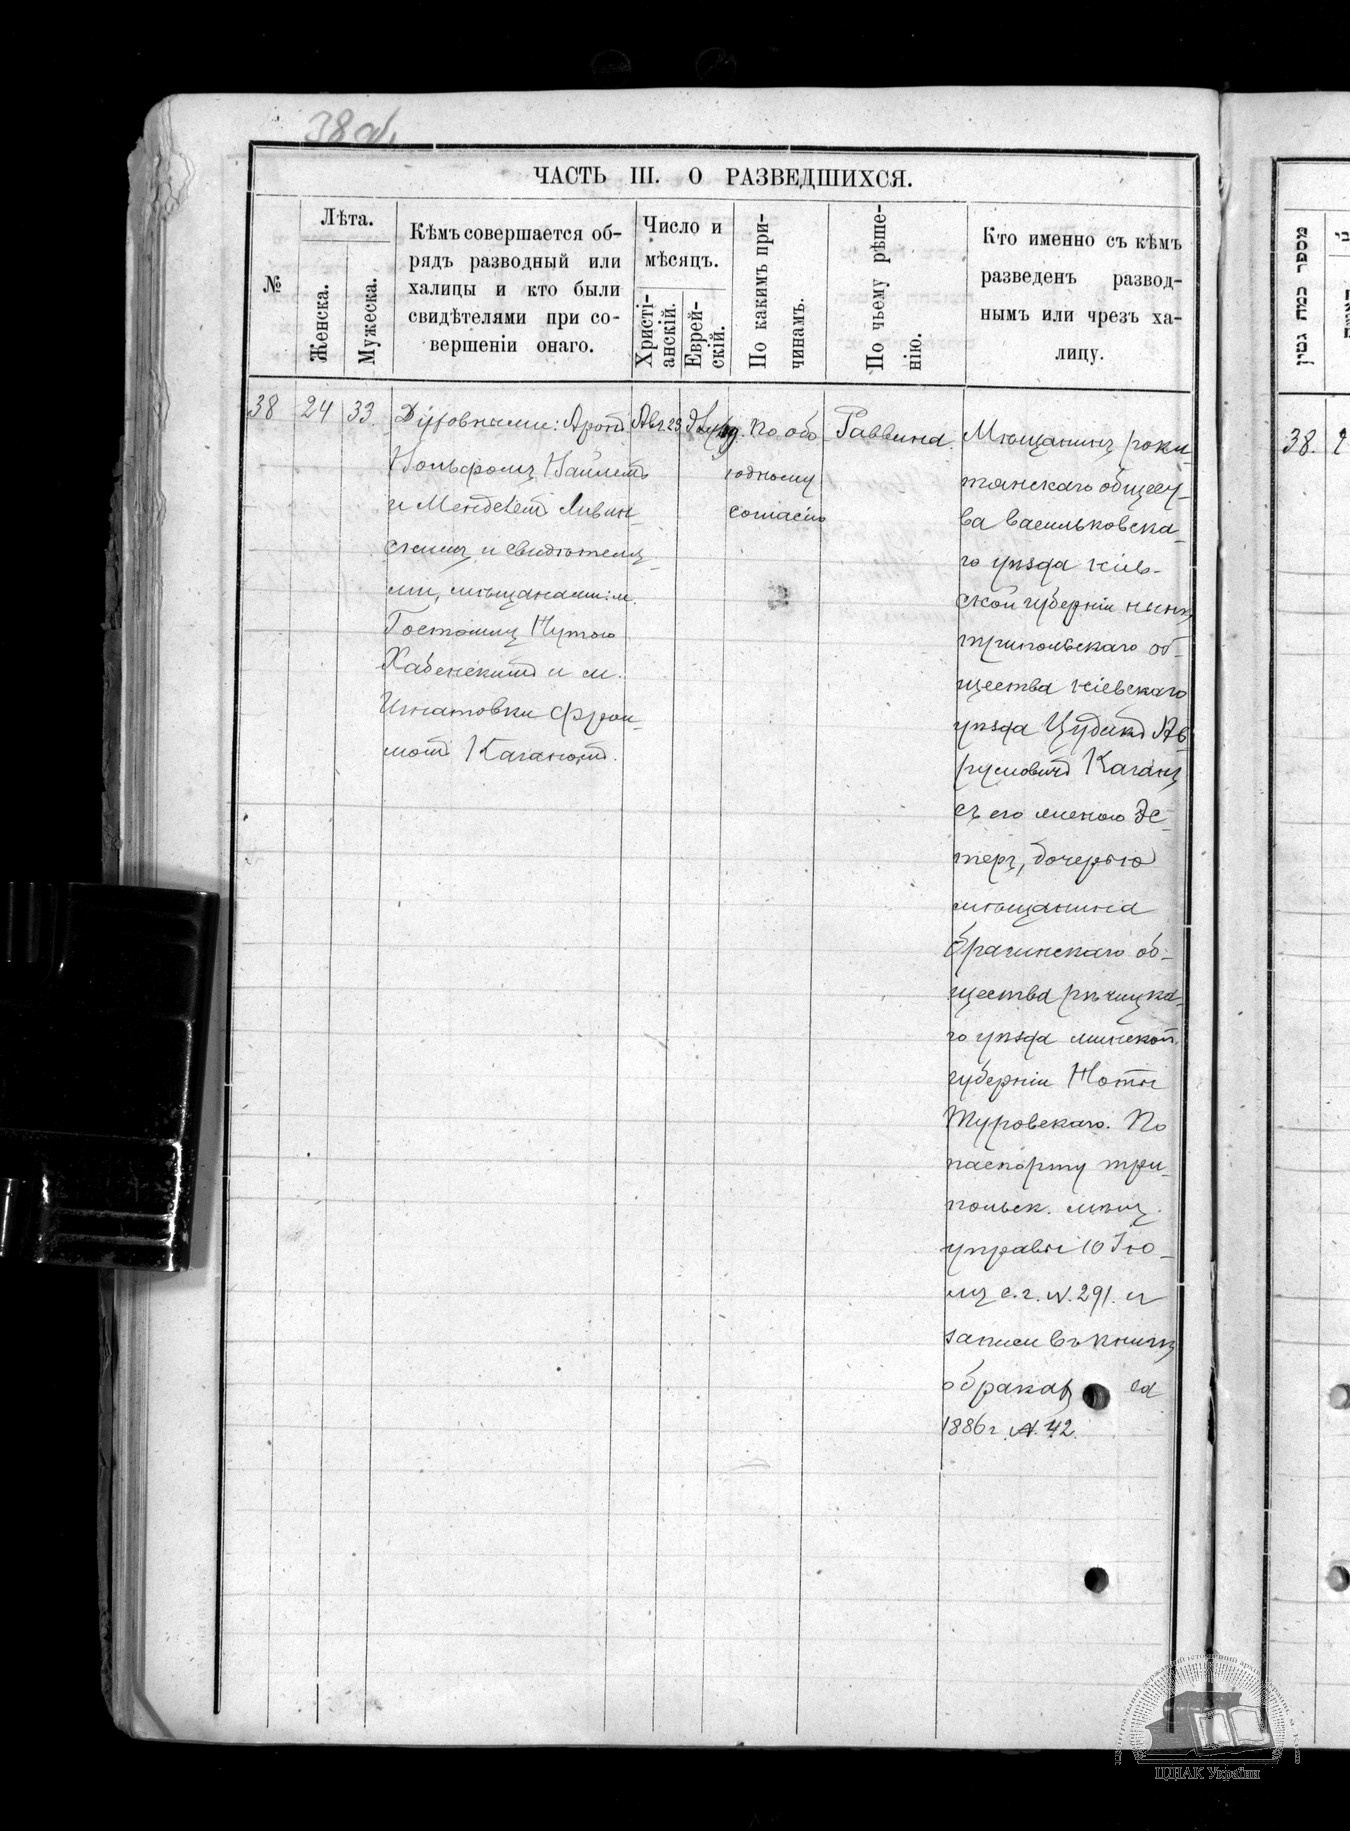 38 об.
ЧАСТЬ III. О РАЗВЕДШИХСЯ.
№
Лѣта.
Женска.
Мужеска.
Кѣмъ совершается об-
рядъ разводный или
халицы и кто были
свидѣтелями при со-
вершеніи онаго.
Число и
мѣсяцъ.
Христі-
анскій.
Еврей-
скій.
По какимъ при-
чинамъ.
По чьему рѣше-
нію.
Кто именно съ кѣмъ
разведенъ развод-
нымъ или чрезъ ха-
лицу.
38
24
33.
Духовными: Арон
Вольфомъ
и Менделем Ливин-
скимъ и свидѣтеля-
ми, мѣщанами: м.
Гостомля Нутою
Хабенским и м.
Игнатовки Фрои-
мом Каганом.
Авг. 23
По обо-
юдному
согласію
Раввина.
Мѣщанинъ роки-
тянскаго общест-
ва васильковска-
го уѣзда Кіев-
ской губерніи нынѣ
трипольскаго об-
щества кіевскаго
уѣзда Цудик Ав-
румович Каганъ
съ его женою Эс-
терѣ, дочерью
мѣщанина
брагинскаго об-
щества рѣчицка-
го уѣзда минской
губерніи Ноты
Туровскаго. По
паспорту три-
польск. мѣщ.
управы 10 Ію-
ля с.г. N. 291. и
записи въ книгѣ
о бракахъ за
1886 г. N. 42.
מספר כמה גטין
38.
2
ЦДІАК України